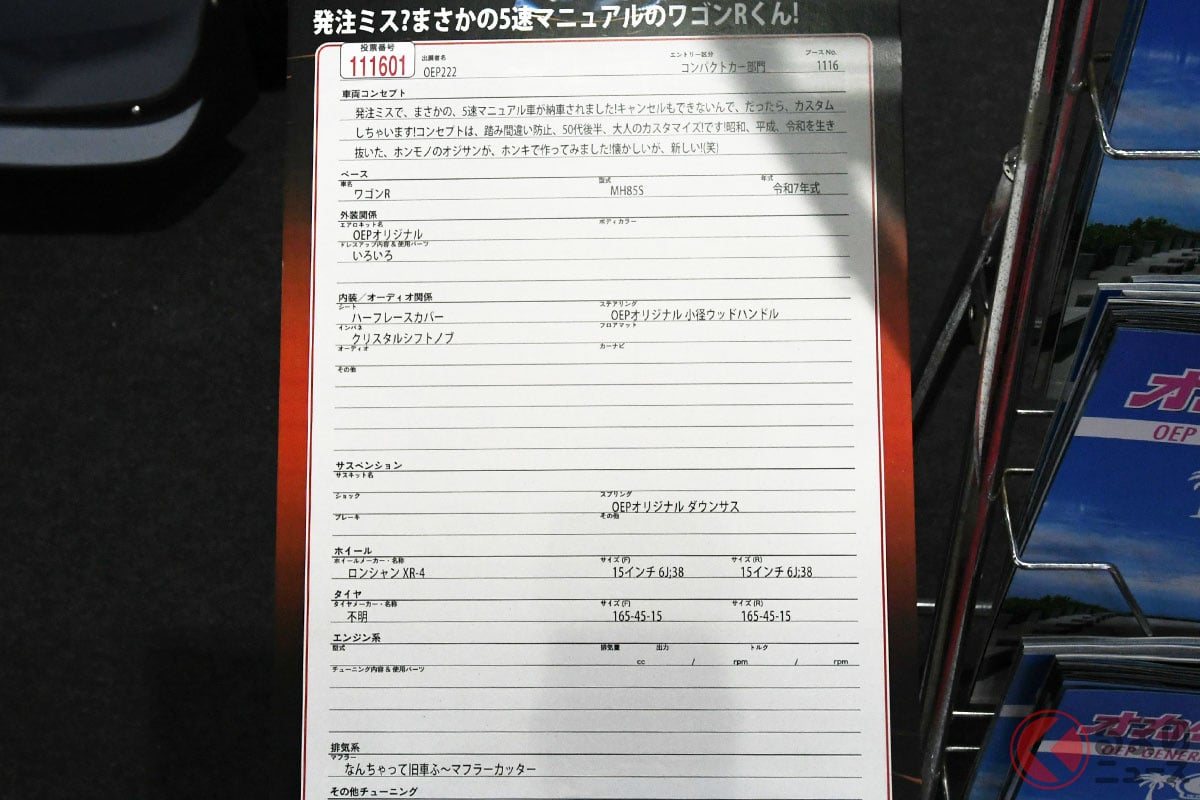 発注ミス?まさかの5速マニュアルのワゴンRくん!
投票番号
111601
出展者名
OEP222
エントリー区分
コンパクトカー部門
ブースNo.
1116
車両コンセプト
発注ミスで、まさかの、5速マニュアル車が納車されました!キャンセルもできないんで、だったら、カスタム
しちゃいます!コンセプトは、踏み間違い防止、50代後半、大人のカスタマイズ!です!昭和、平成、令和を生き
抜いた、ホンモノのオジサンが、ホンキで作ってみました!懐かしいが、新しい!(笑)
ベース
車名
ワゴンR
型式
MH85S
年式
令和7年式
外装関係
エアロキット名
OEPオリジナル
ボディカラー
ドレスアップ内容&使用パーツ
いろいろ
内装/オーディオ関係
シート
ハーフレースカバー
ステアリング
OEPオリジナル 小径ウッドハンドル
インパネ
クリスタルシフトノブ
フロアマット
オーディオ
カーナビ
その他
サスペンション
サスキット名
ショック
スプリング
OEPオリジナル ダウンサス
ブレーキ
その他
ホイール
ホイールメーカー・名称
ロンシャン XR-4
サイズ(F)
15インチ 6J;38
サイズ(R)
15インチ 6J;38
タイヤ
タイヤメーカー・名称
不明
サイズ(F)
165-45-15
サイズ(R)
165-45-15
エンジン系
型式
排気量
cc
出力
/ rpm
トルク
/ rpm
チューニング内容&使用パーツ
排気系
マフラー
なんちゃって旧車ふ〜マフラーカッター
その他チューニング
オカ
OEP
オカ
OEP GENER